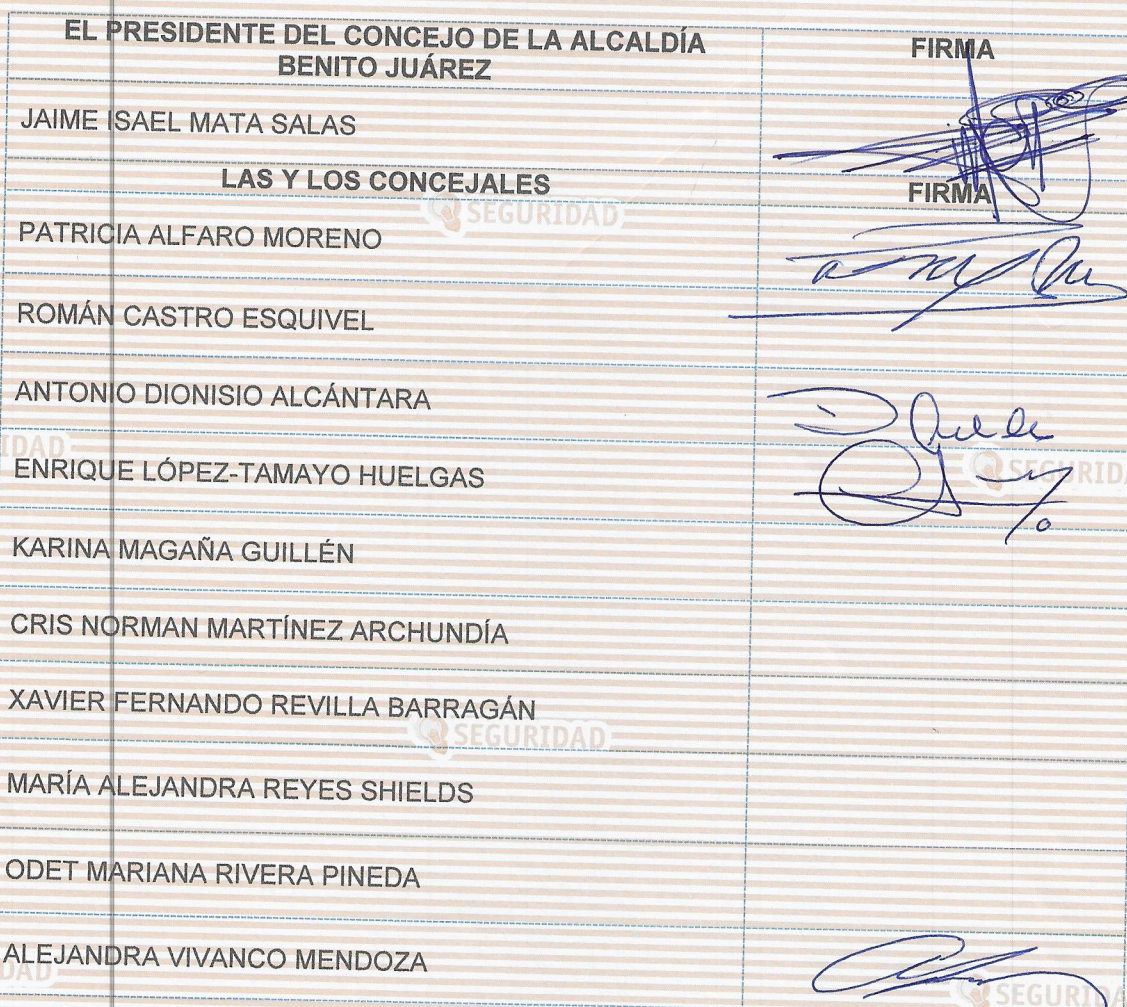 EL PRESIDENTE DEL CONCEJO DE LA ALCALDÍA
BENITO JUÁREZ
FIRMA
JAIME ISAEL MATA SALAS
LAS Y LOS CONCEJALES
FIRMA
SEGURIDAD
PATRICIA ALFARO MORENO
ROMÁN CASTRO ESQUIVEL
ANTONIO DIONISIO ALCÁNTARA
IDAD
ENRIQUE LÓPEZ-TAMAYO HUELGAS
SEGURIDA
KARINA MAGAÑA GUILLÉN
CRIS NORMAN MARTÍNEZ ARCHUNDÍA
XAVIER FERNANDO REVILLA BARRAGÁN
SEGURIDAD
MARÍA ALEJANDRA REYES SHIELDS
ODET MARIANA RIVERA PINEDA
ALEJANDRA VIVANCO MENDOZA
DAD
SEGURIDA